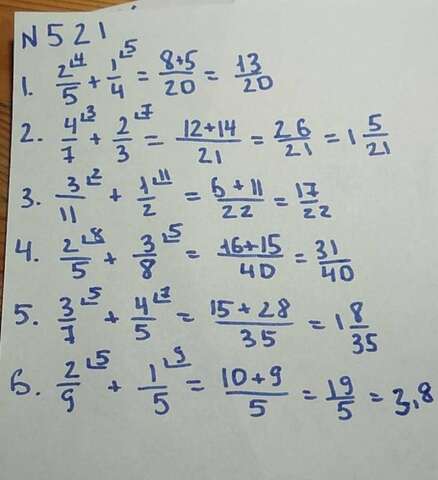 N521
1. 2/5 ⌊4 + 1/4 ⌊5 = 8+5/20 = 13/20
2. 4/7 ⌊3 + 2/3 ⌊7 = 12+14/21 = 26/21 = 1 5/21
3. 3/11 ⌊2 + 1/2 ⌊11 = 6+11/22 = 17/22
4. 2/5 ⌊8 + 3/8 ⌊5 = 16+15/40 = 31/40
5. 3/7 ⌊5 + 4/5 ⌊7 = 15+28/35 = 1 8/35
6. 2/9 ⌊5 + 1/5 ⌊9 = 10+9/5 = 19/5 = 3,8